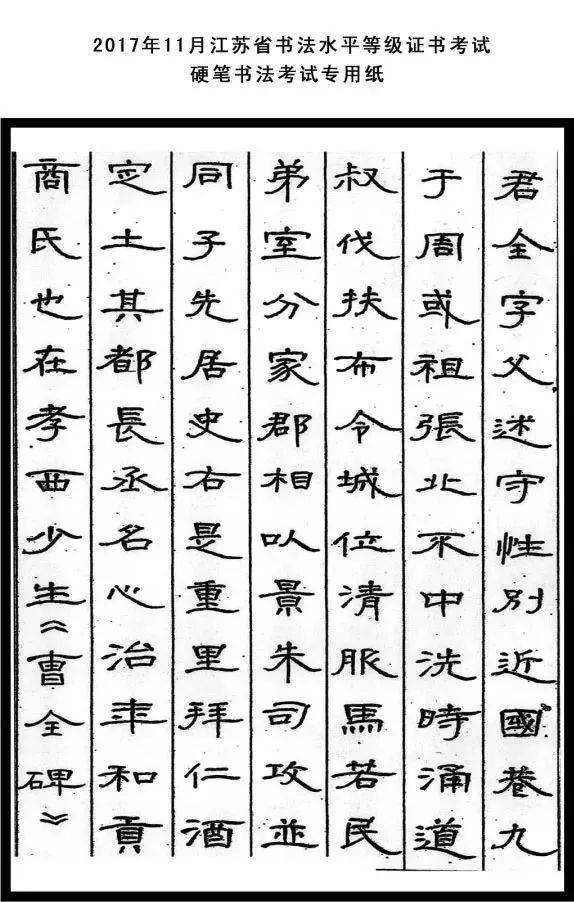 2017年11月江苏省书法水平等级证书考试
硬笔书法考试专用纸
君全字父述守性別近國巷九
于周或祖張北不中洗時涌道
叔伐扶布令城位清服馬若民
弟室分家郡相以景朱司攻並
同子先居史右是重里拜仁酒
定土其都長丞名心治年和貢
商氏也在孝西少生《曹全碑》